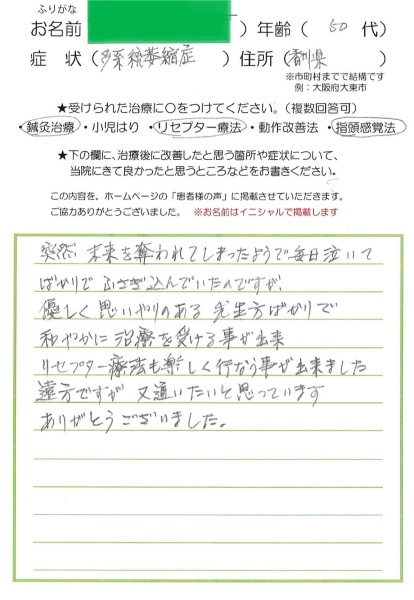 ふりがな
お名前（　　　）年齢（ 50 代）
症 状（多系統萎縮症）住所（香川県　）
※市町村までで結構です
例：大阪府大東市
★受けられた治療に○をつけてください。（複数回答可）
・鍼灸治療・小児はり・リセプター療法・動作改善法・指頭感覚法
★下の欄に、治療後に改善したと思う箇所や症状について、
当院にきて良かったと思うところなどをお書きください。
この内容を、ホームページの「患者様の声」に掲載させていただきます。
ご協力ありがとうございました。 ※お名前はイニシャルで掲載します
突然 未来を奪われてしまったようで毎日泣いて
ばかりで ふさぎ込んでいたのですが、
優しく思いやりのある先生方ばかりで
和やかに治療を受ける事が出来
リセプター療法も楽しく行なう事が出来ました
遠方ですが 又通いたいと思っています
ありがとうございました。